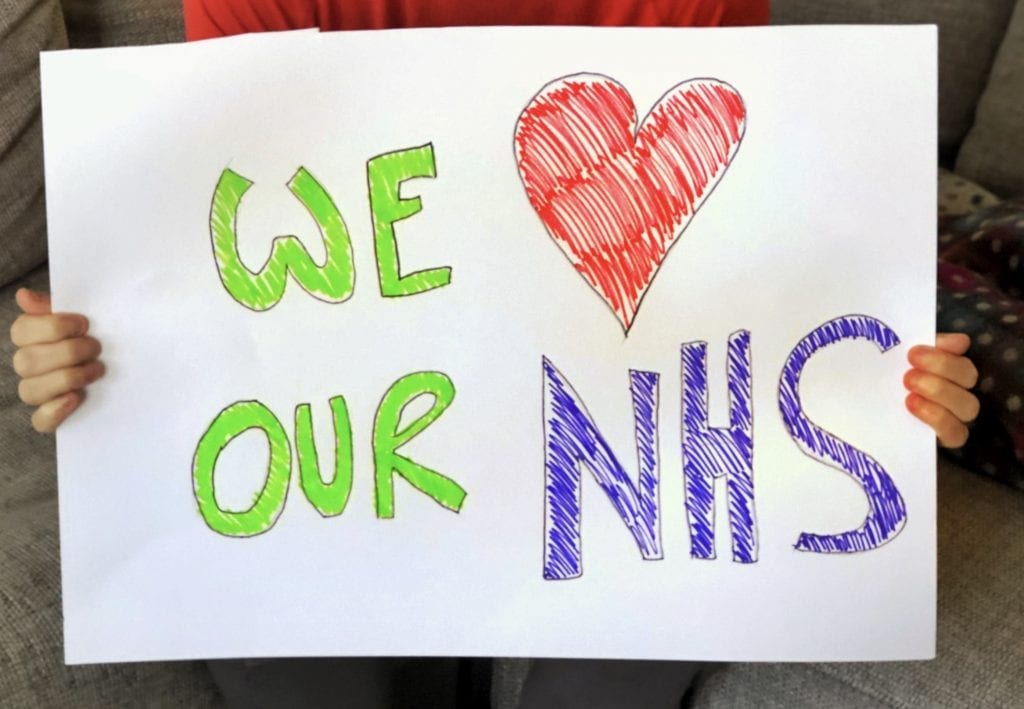 WE ❤
OUR NHS